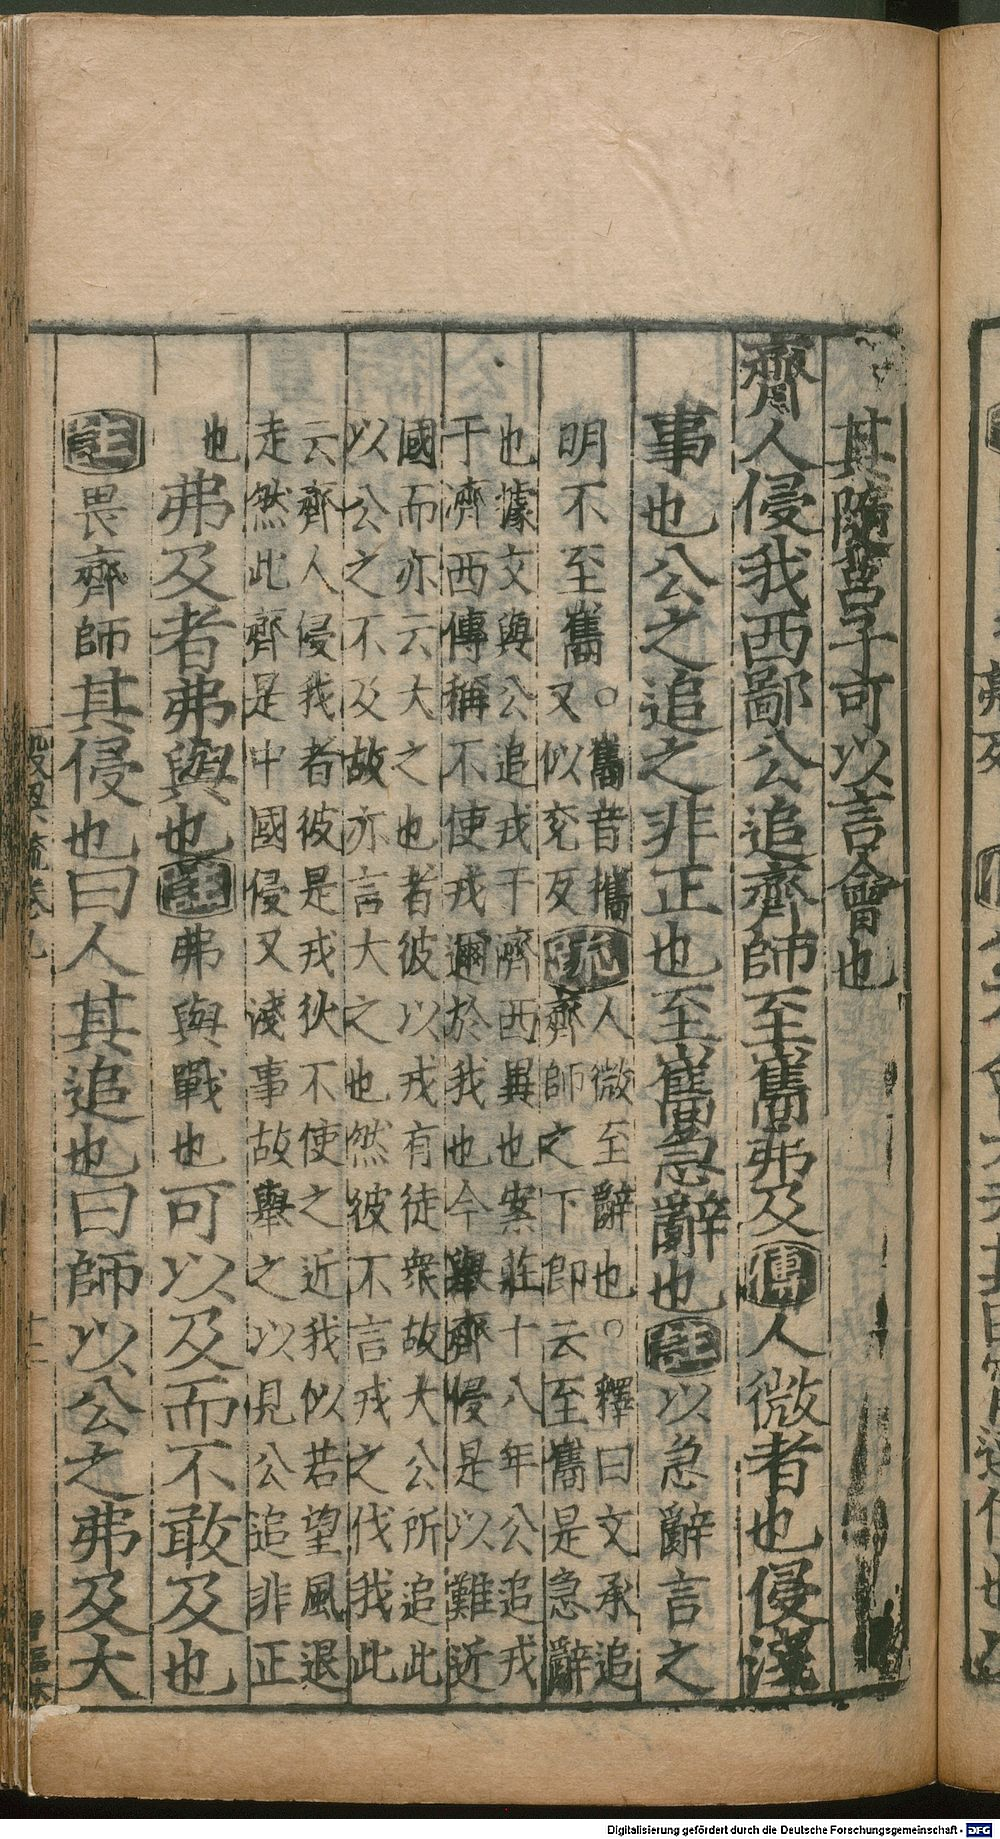 其隨莒子可以言會也
齊人侵我西鄙公追齊師至巂弗及傳人微者也侵淺
事也公之追之非正也至巂急辭也註以急辭言之
明不至巂○巂音攜又似兗反疏人微至辭也○釋曰文承追
齊師之下即云至巂是急辭
也據文與公追戎于濟西異也案莊十八年公追戎
于濟西傳稱不使戎邇於我也今舉齊侵是以難近
國而亦云大之也者彼以戎有徒衆故大公所追此
以公之不及故亦言大之也然彼不言戎之伐我此
云齊人侵我者彼是戎狄不使之近我似若望風退
走然此齊是中國侵又淺事故舉之以見公追非正
也弗及者弗與也註弗與戰也可以及而不敢及也
註畏齊師其侵也曰人其追也曰師以公之弗及大
疏卷九
十二
Digitalisierung gefördert durch die Deutsche Forschungsgemeinschaft - DFG